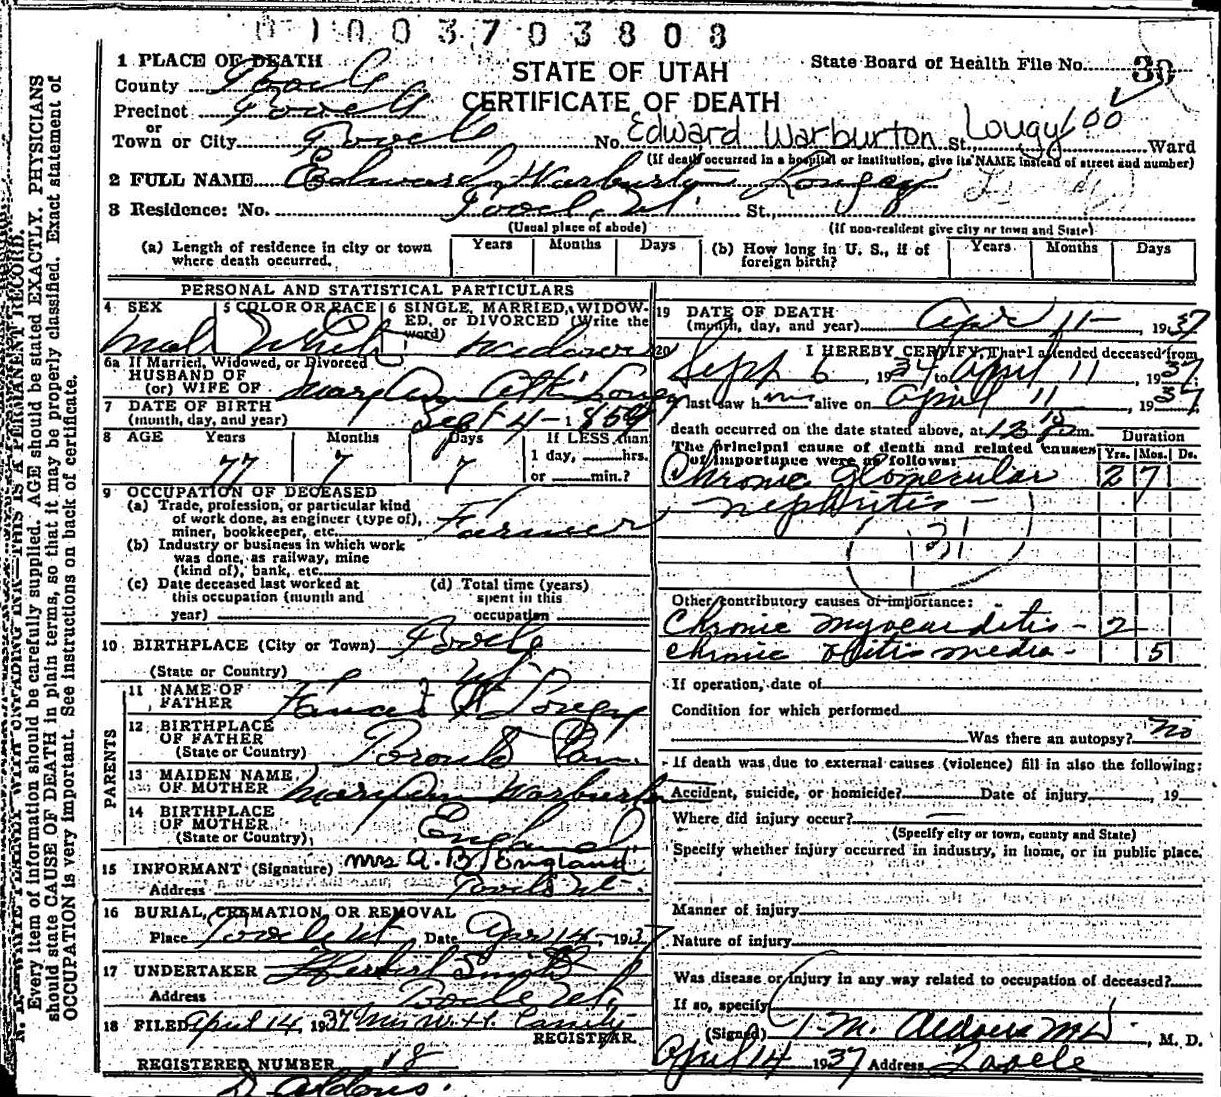 01003703808
1 PLACE OF DEATH
County Tooele
STATE OF UTAH
State Board of Health File No. 30
Precinct Tooele
CERTIFICATE OF DEATH
or
Town or City Tooele No. Edward Warburton St. Lougy Ward
(If death occurred in a hospital or institution, give its NAME instead of street and number)
2 FULL NAME Edward Warburton Lougy
3 Residence: No. Tooele, Ut. St.,
(Usual place of abode) (If non-resident give city or town and State)
(a) Length of residence in city or town where death occurred. Years Months Days (b) How long in U. S., if of foreign birth? Years Months Days
PERSONAL AND STATISTICAL PARTICULARS
4 SEX 5 COLOR OR RACE 6 SINGLE, MARRIED, WIDOWED, or DIVORCED (Write the word)
Male White Widower
6a If Married, Widowed, or Divorced
HUSBAND OF
(or) WIFE OF Mary Ann Lougy
7 DATE OF BIRTH
(month, day, and year) Sept 4 - 1859
8 AGE Years Months Days If LESS than
77 7 7 1 day, hrs.
or min.?
9 OCCUPATION OF DECEASED
(a) Trade, profession, or particular kind
of work done, as engineer (type of),
miner, bookkeeper, etc. Farmer
(b) Industry or business in which work
was done, as railway, mine
(kind of), bank, etc.
(c) Date deceased last worked at
this occupation (month and
year)
(d) Total time (years)
spent in this
occupation
10 BIRTHPLACE (City or Town) Tooele
(State or Country) Ut.
PARENTS
11 NAME OF
FATHER Lougy
12 BIRTHPLACE
OF FATHER
(State or Country)
13 MAIDEN NAME
OF MOTHER Mary Ann Warburton
14 BIRTHPLACE
OF MOTHER
(State or Country) England
15 INFORMANT (Signature) Mrs A. B. England
Address Tooele Ut.
16 BURIAL, CREMATION OR REMOVAL
Place Tooele Ut Date Apr 14 - 1937
17 UNDERTAKER
Address Tooele Ut.
18 FILED April 14, 1937 Mrs W. H.
REGISTRAR.
REGISTERED NUMBER 18
19 DATE OF DEATH
(month, day, and year) Apr 11 - , 1937
20 I HEREBY CERTIFY, That I attended deceased from
Sept 6, 1934 to April 11, 1937
I last saw him alive on April 11, 1937
death occurred on the date stated above, at m.
The principal cause of death and related causes
of importance were as follows: Duration
Yrs. Mos. Ds.
Chronic glomerular 2 7
nephritis -
131
Other contributory causes of importance:
Chronic myocarditis - 2
Chronic otitis media - 5
If operation, date of
Condition for which performed
Was there an autopsy? No
If death was due to external causes (violence) fill in also the following:
Accident, suicide, or homicide? Date of injury , 19
Where did injury occur?
(Specify city or town, county and State)
Specify whether injury occurred in industry, in home, or in public place.
Manner of injury
Nature of injury
Was disease or injury in any way related to occupation of deceased?
If so, specify
(Signed) M. D.
April 14 1937 Address Tooele
N. B.—WRITE PLAINLY WITH UNFADING INK—THIS IS A PERMANENT RECORD.
Every item of information should be carefully supplied. AGE should be stated EXACTLY. PHYSICIANS
should state CAUSE OF DEATH in plain terms, so that it may be properly classified. Exact statement of
OCCUPATION is very important. See instructions on back of certificate.